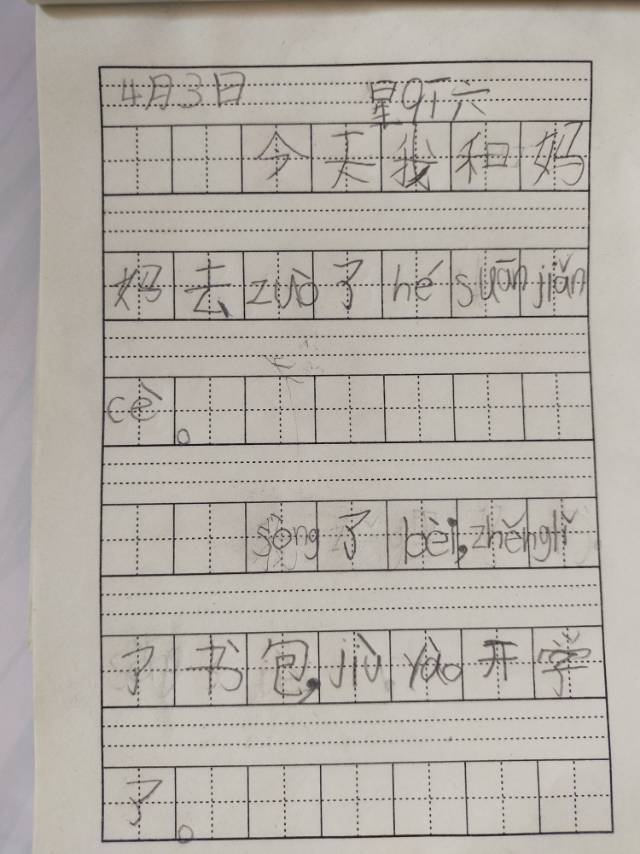 4月3日 星qī六
今天我和妈
妈去zuò了hé suān jiǎn
cè。
sòng了bèi,zhěng lǐ
了书包,jiù yào开学
了。